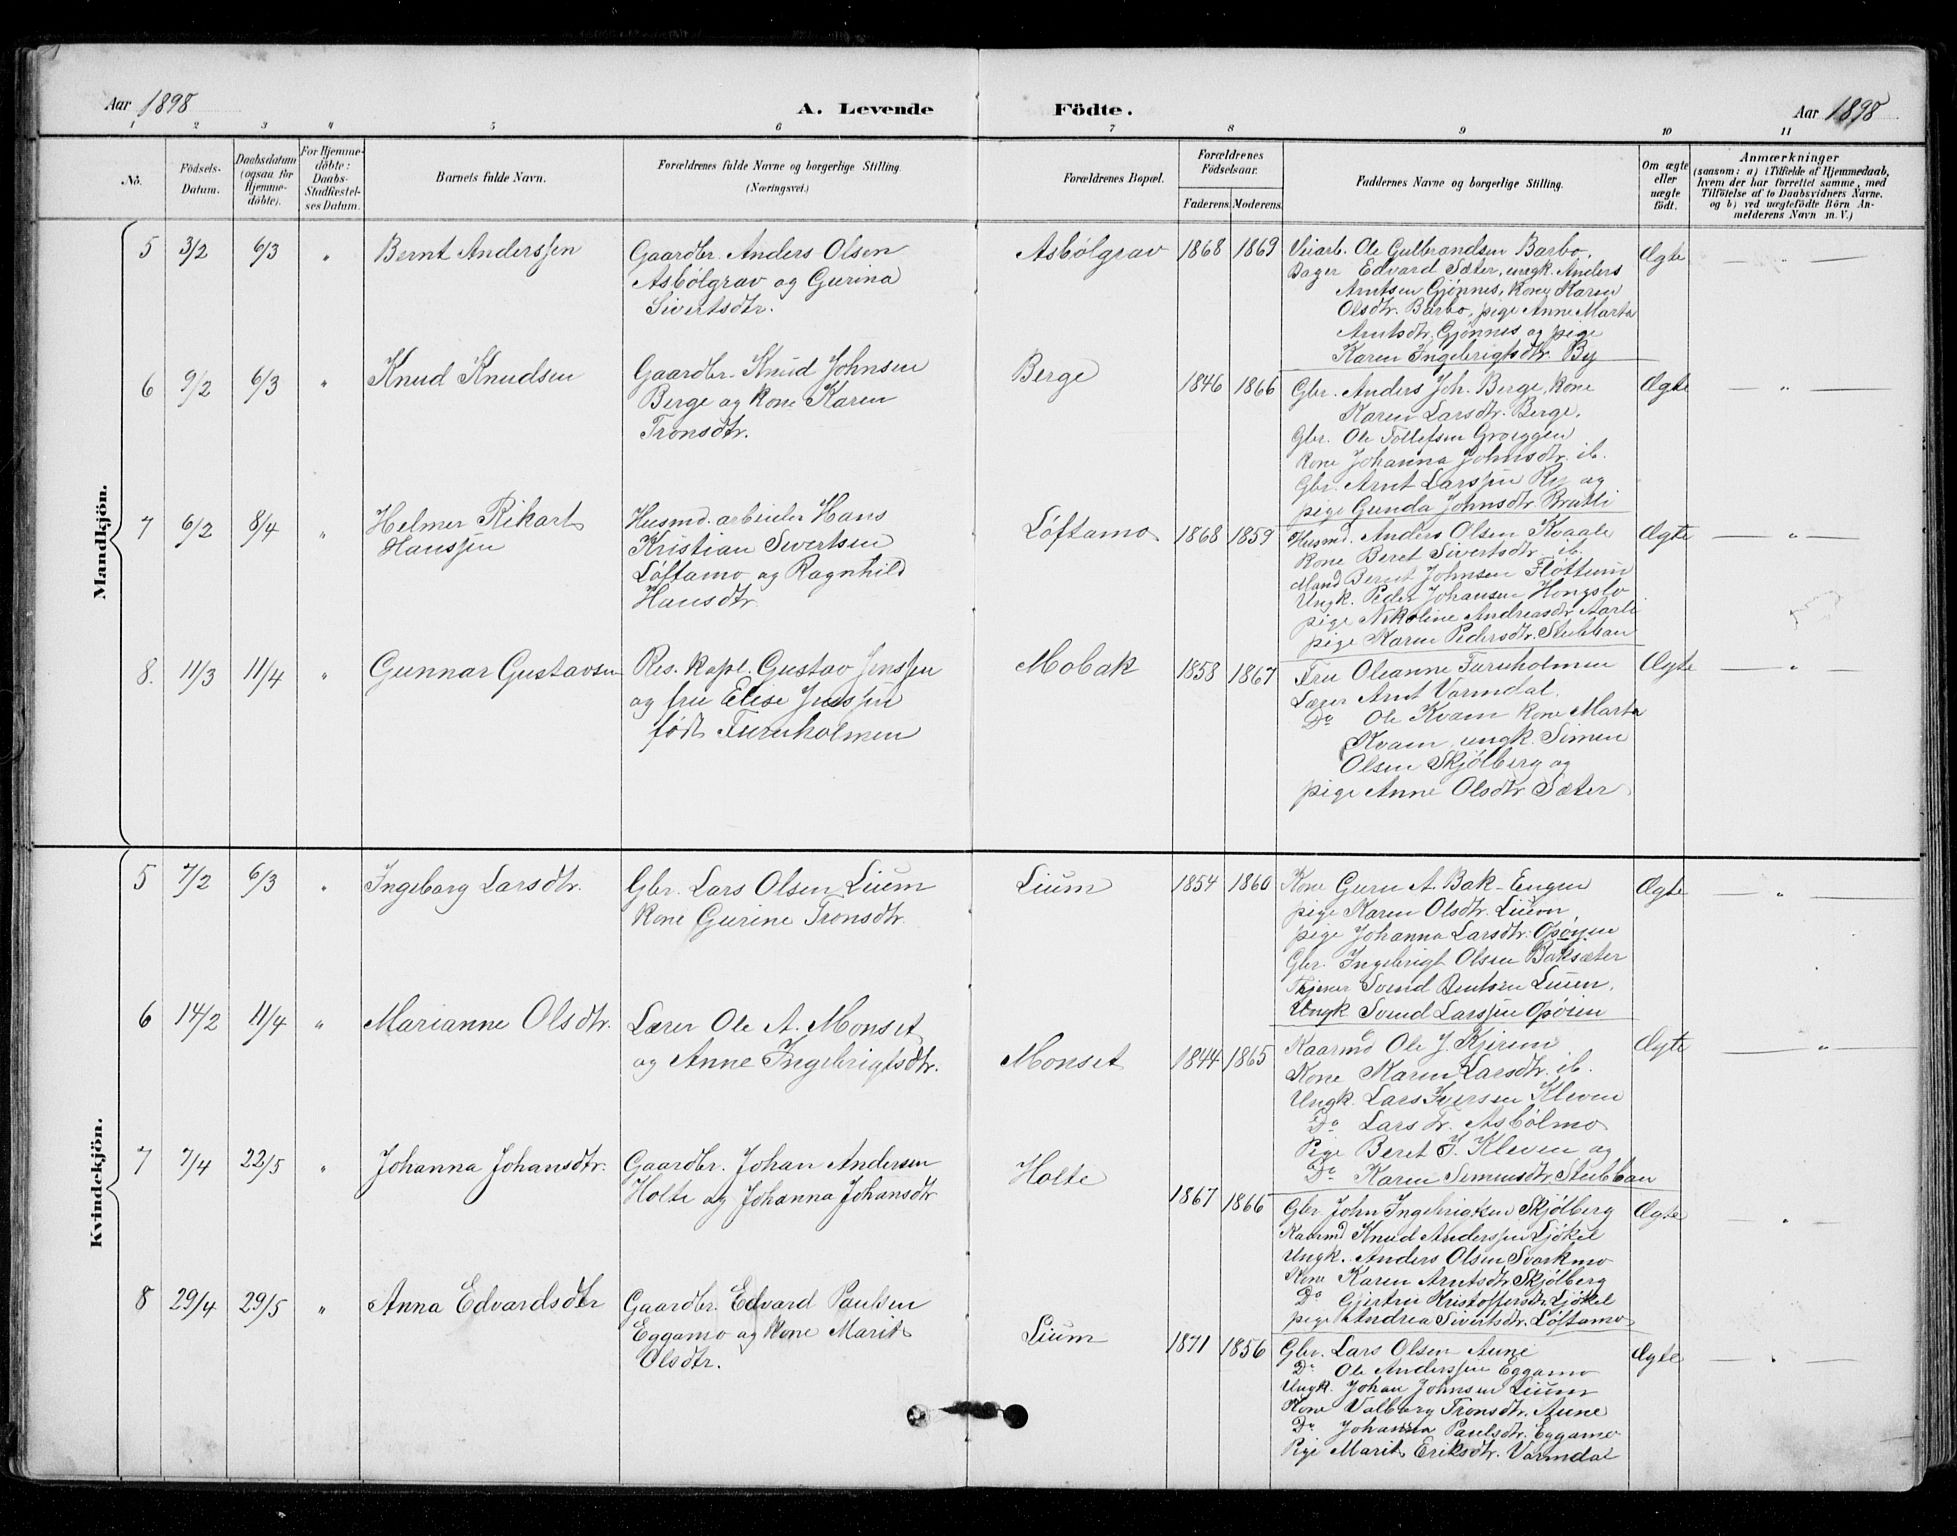 Aar 1898
A. Levende Födte.
Aar 1898
1 2 3 4 5 6 7 8 9 10 11
No.
Födsels-
Datum.
Daabsdatum
(ogsaa for
Hjemme-
döbte).
For Hjemme-
döbte:
Daabs-
Stadfæstel-
ses Datum.
Barnets fulde Navn.
Forældrenes fulde Navne og borgerlige Stilling.
(Næringsvei.)
Forældrenes Bopæl.
Forældrenes
Födselsaar.
Faderens. Moderens.
Faddernes Navne og borgerlige Stilling.
Om ægte
eller
uægte
födt.
Anmærkninger
(saasom: a) i Tilfælde af Hjemmedaab,
hvem der har forrettet samme, med
Tilföielse af to Daabsvidners Navne,
og b) ved uægtefödte Börn An-
melderens Navn m. V.)
Mandkjön.
5 3/2 6/3 „ Bernt Anderssen
Gaardbr. Anders Olsen
Asbölgrav og Gurina
Sivertsdtr.
Asbölgrav 1868 1869
Veiarb. Ole Gulbrandsen Barbo,
Bager Edvard Sæter, ungk. Anders
Arntsen Gjönnes, kone Karen
Olsdtr. Barbo, pige Anne Marta
Arntsdtr. Gjönnes og pige
Karen Ingebrigtsdtr. By
Ægte — „ —
6 9/2 6/3 „ Knud Knudsen
Gaardbr. Knud Johnsen
Berge og kone Karen
Tronsdtr.
Berge 1846 1866
Gbr. Anders Joh. Berge, kone
Karen Larsdtr. Berge.
Gbr. Ole Tollefsen Groeggen
kone Johanna Johnsdtr. ib.
Gbr. Arnt Larssen Ry og
pige Gunda Johnsdtr. Bratli
Ægte — „ —
7 6/2 8/4 „ Helmer Rikart
Hanssen
Husmd. arbeider Hans
Kristian Sivertsen
Löftamo og Ragnhild
Hansdtr.
Löftamo 1868 1859
Husmd. Anders Olsen Kvaale
kone Beret Sivertsdtr. ib.
Mand Bernt Johnsen Flöttum
Ungk. Peder Johansen Hongslo
pige Nikoline Andreasdtr. Aarli
pige Karen Pedersdtr. Stubban
Ægte — „ —
8. 11/3 11/4 „ Gunnar Gustavsen
Res. kapl. Gustav Jenssen
og fru Elise Jenssen
födt Furuholmen
Mobak 1858 1867
Fru Oleanne Furuholmen
Lærer Arnt Vormdal.
Do Ole Kvam kone Marta
Kvam, ungk. Simen
Olsen Skjölberg og
pige Anne Olsdtr. Sæter
Ægte — „ —
Kvindekjön.
5 7/2 6/3 „ Ingeborg Larsdtr.
Gbr. Lars Olsen Lium
kone Gurine Tronsdtr.
Lium 1854 1860
Kone Guru A. Bak-Engen
pige Karen Olsdtr. Lium,
pige Johanna Larsdtr. Opöyen
Gbr. Ingebrigt Olsen Baksæter
Tjener Svend Bentsen Lium,
Ungk Svend Larssen Opöien
Ægte — „ —
6 14/2 11/4 „ Marianne Olsdtr.
Lærer Ole A. Monset
og Anne Ingebrigtsdtr.
Monset 1844 1865
Kaarmd Ole J. Kjiren
Kone Karen Larsdtr. ib.
Ungk. Lars Iverssen Kleven
Do Lars Tr. Asbölmo
Pige Beret J. Kleven og
Do Karen Simensdtr. Stubban
Ægte — „ —
7 7/4 22/5 „ Johanna Johansdtr.
Gaardbr. Johan Andersen
Holte og Johanna Johansdtr
Holte 1867 1866
Gbr. John Ingebrigtsen Skjölberg
Kaarmd Knud Anderssen Ljökel
Ungk. Anders Olsen Svarkmo
Kone Karen Arntsdtr Skjölberg
Do Gjertru Kristoffersdtr. Ljökel
pige Andrea Sivertsdtr. Löftamo
Ægte — „ —
8 29/4 29/5 „ Anna Edvardsdtr
Gaardbr. Edvard Paulsen
Eggamo og kone Marit
Olsdtr.
Lium 1871 1856
Gbr. Lars Olsen Aune
Do Ole Anderssen Eggamo
Ungk. Johan Johnsen Lium
Kone Valborg Tronsdtr. Aune
Do Johanna Paulsdtr. Eggamo
Pige Marit Eriksdtr. Vormdal
Ægte — „ —